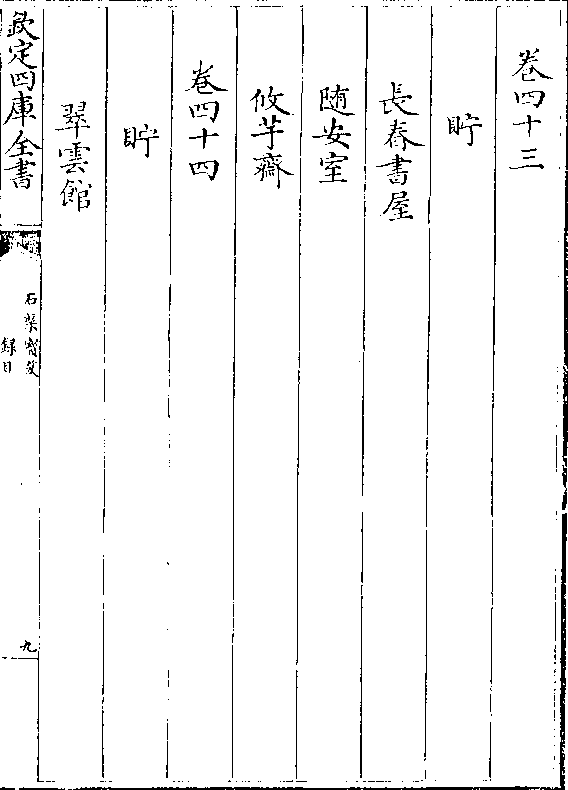 卷四十三
貯
長春書屋
随安室
攸芋齋
卷四十四
貯
翠雲館
欽定四庫全書
石渠寶笈
録目
九